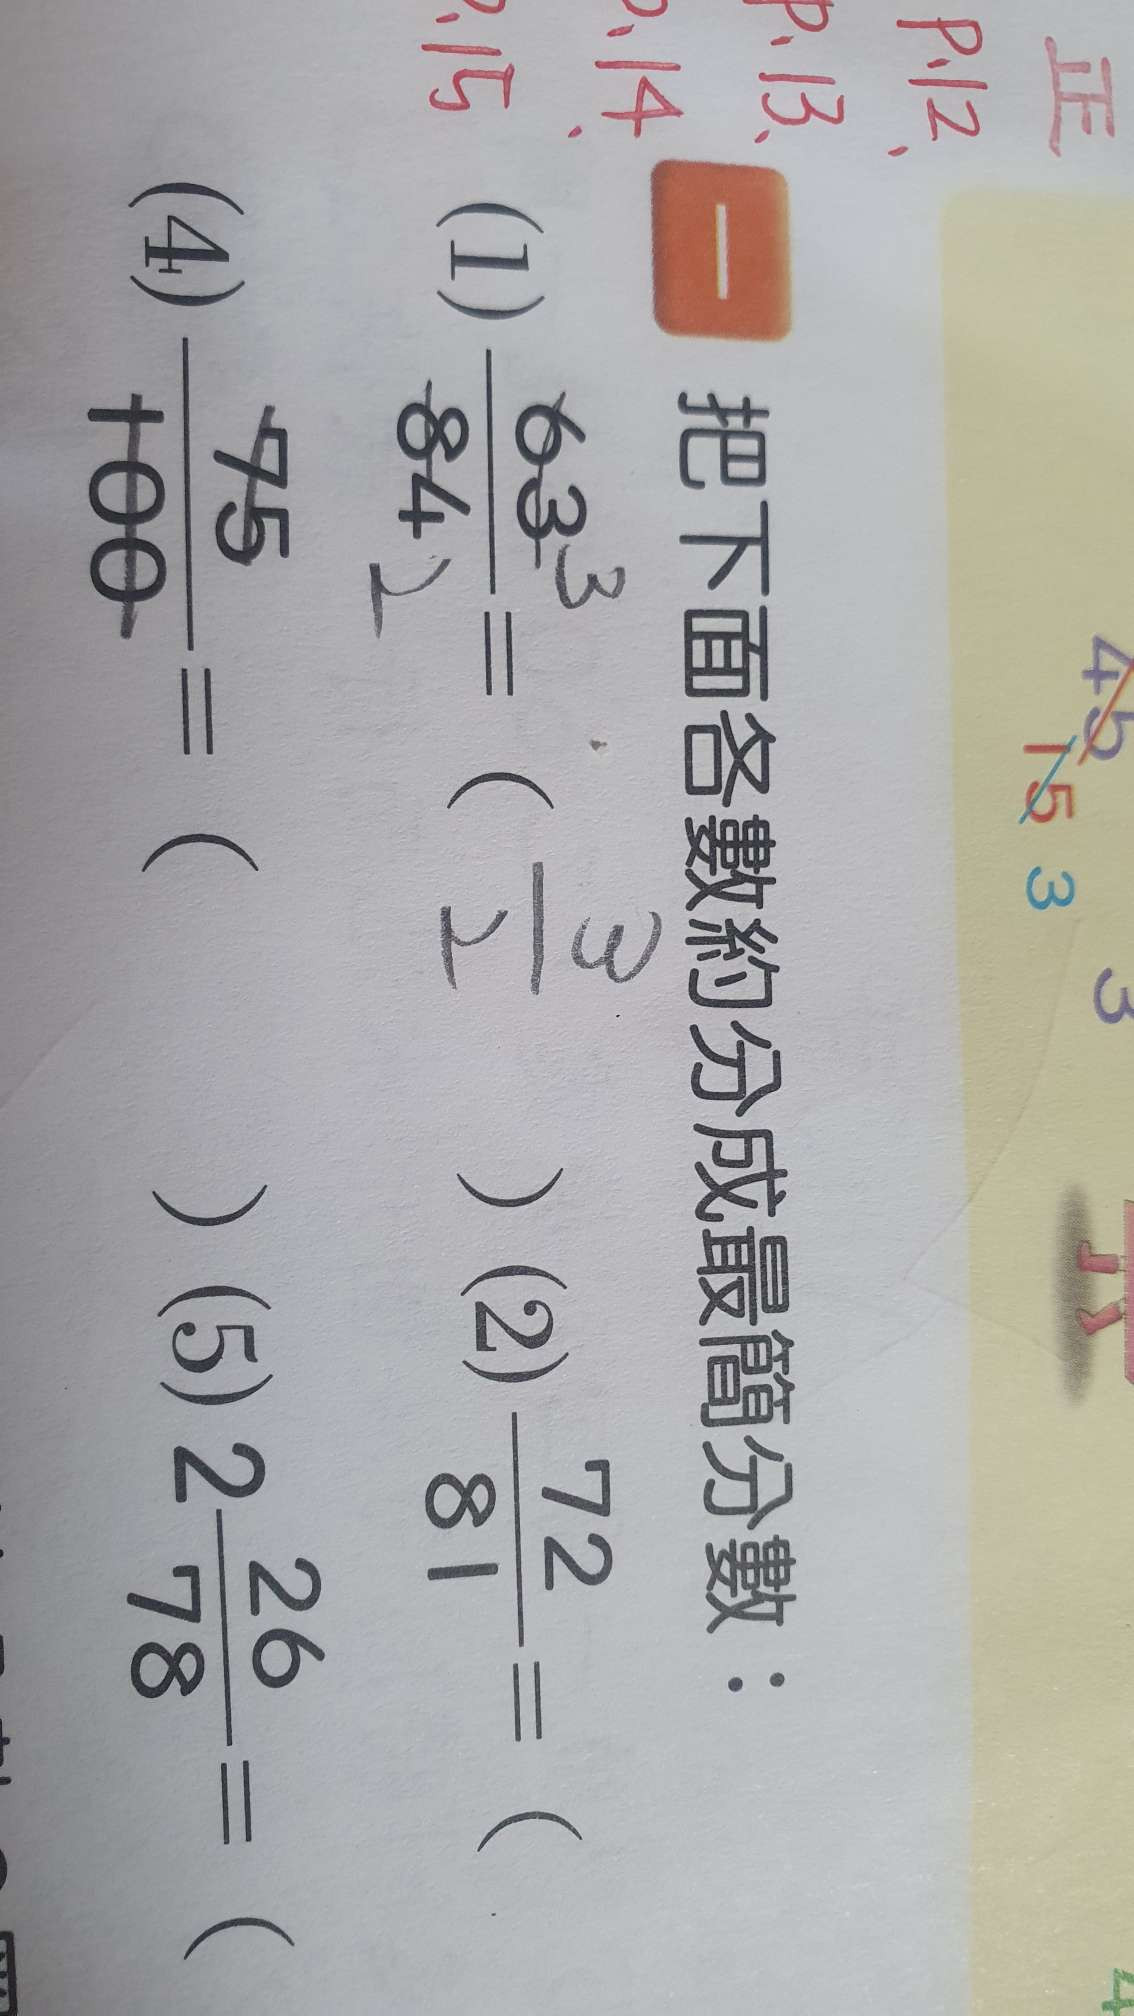 正
P.12、
P.13、
P.14、
P.15
45
15 3
3
4
一 把下面各數約分成最簡分數：
(1) 63/84 3 2 = ( 3/2 ) (2) 72/81 = (
(4) 75/100 = ( ) (5) 2 26/78 = (